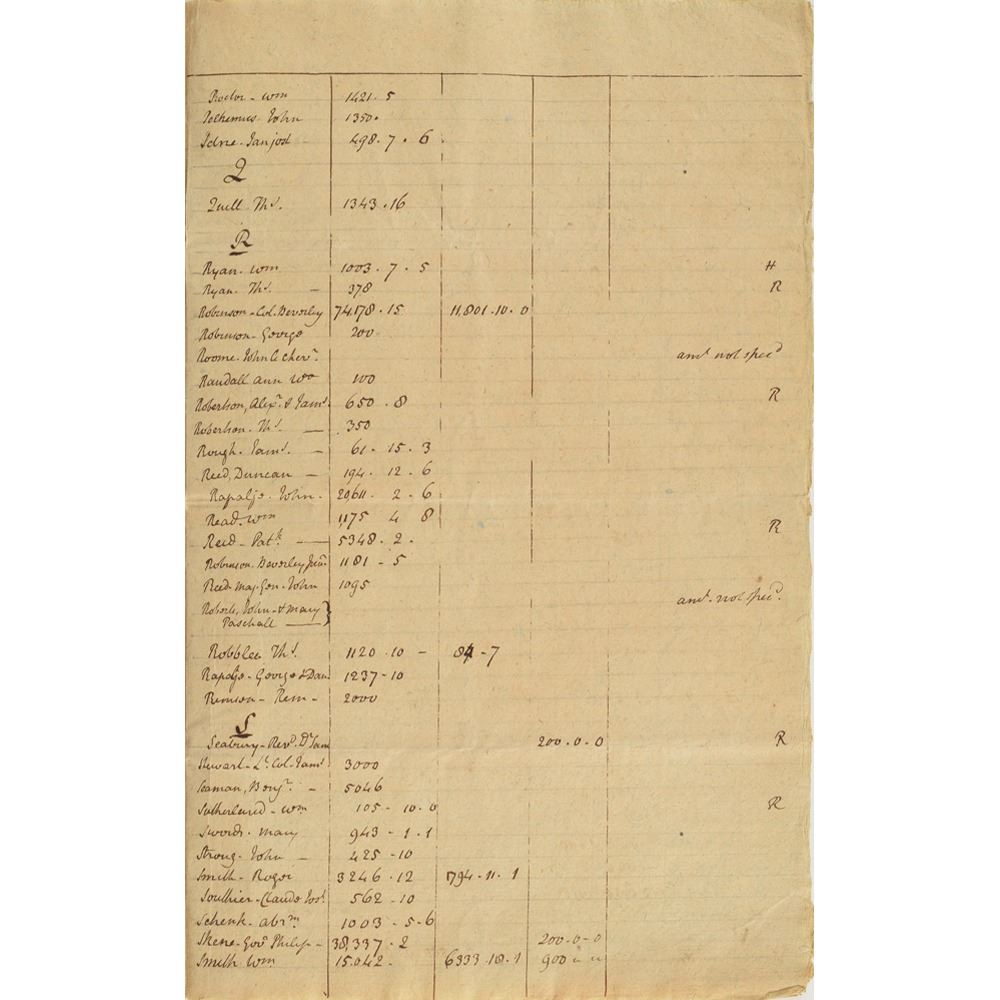 Proctor - Wm 1421. 5
Polhemus John 1350.
John 498. 7. 6
Q
Quill Ths. 1343. 16
R
Ryan. Wm 1003. 7. 5 H
Ryan. Ths. — 378 R
Robinson - Col. Beverley 74178. 15 11,801. 10. 0
Robinson - George 200
Roome. John Le Chevr. amt not specd
Randall Ann Wo 100
Robertson, Alexr. & Jams. 650. 8 R
Robertson. Ths. — 350
Rough. Jams. — 61. 15. 3
Reed, Duncan — 194. 12. 6
Rapalje. John. 20,611. 2. 6
Read. Wm 1,175 4 8
Reed - Patk. — 5348. 2. R
Robinson. Beverley Junr. 1181 - 5
Reed. Maj. Gen. John 1095
Roberts, John - & Mary } amt. not specd.
Paschall —
Robblee Ths. 1120. 10 - 84 - 7
Rapalje - George & Dan 1237 - 10
Remson - Rem - 2000
S
Seabury - Revd. Dr Sam 200. 0. 0 R
Stewart - Lt. Col. Jams. 3000
Seaman, Benjn. — 5046
Sutherland - Wm 105 - 10. 0 R
Swords. Mary 943 - 1. 1
Strong - John — 425 - 10
Smith - Roger 3246. 12 1794. 11. 1
Southier - Claude Jos. 562 - 10
Schenk - Abrm 1003 - 5 - 6
Skene - Govr Philip - 38,337. 2 200 - 0 - 0
Smith Wm 15.042. 6333. 18. 1 900 " "